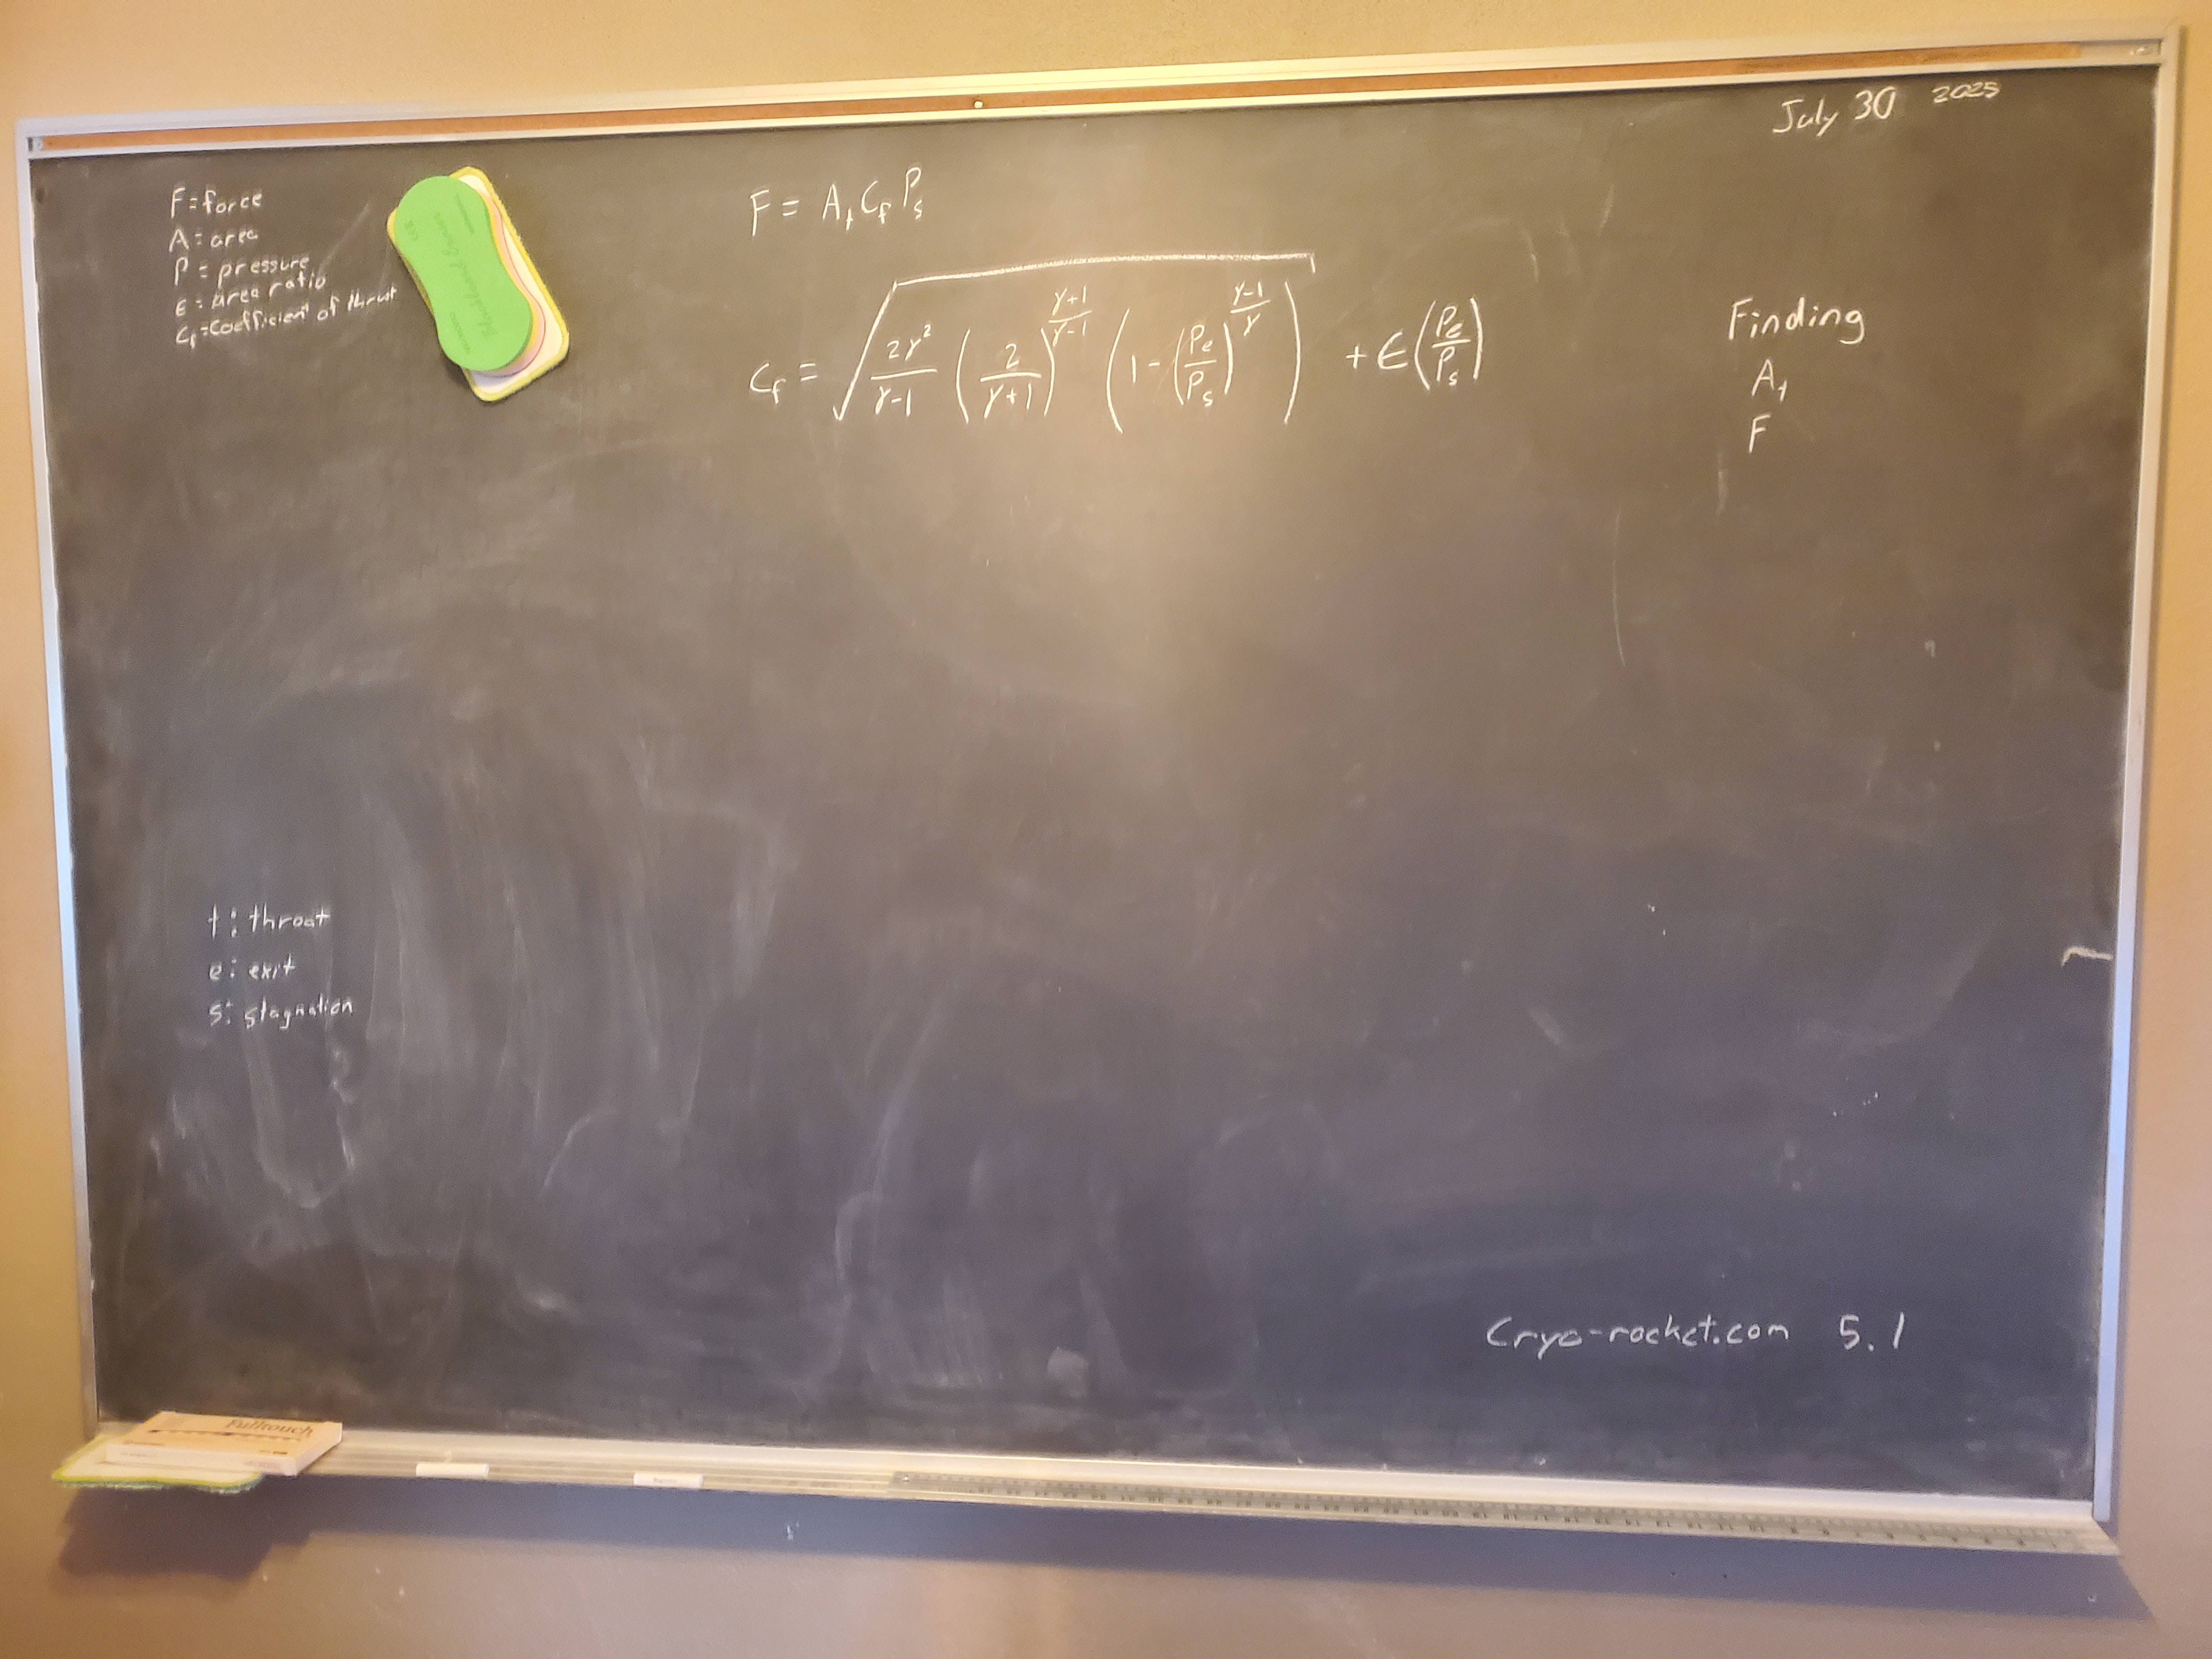 July 30 2025
F = force
A = area
P = pressure
ε = area ratio
Cf = Coefficient of thrust
Blackboard Eraser
F = At Cf Ps
Cf = √( 2γ²/(γ-1) (2/(γ+1))^((γ+1)/(γ-1)) (1-(Pe/Ps)^((γ-1)/γ)) ) + ε(Pe/Ps)
Finding
At
F
t: throat
e: exit
s: stagnation
Cryo-rocket.com 5.1
Fulltouch